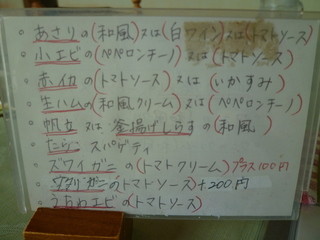 。あさりの(和風)又は(白ワイン)又は(トマトソース)
。小エビの(ペペロンチーノ)又は(トマトソース)
。赤イカ(トマトソース)又は(いかすみ)
。生ハムの(和風クリーム)又は(ペペロンチーノ)
。帆立又は釜揚げしらすの(和風)
。たらこスパゲティ
。ズワイガニの(トマトクリーム)プラス100円
。ワタリガニのトマトソース)+200円
。うちわエビのトマトソース)